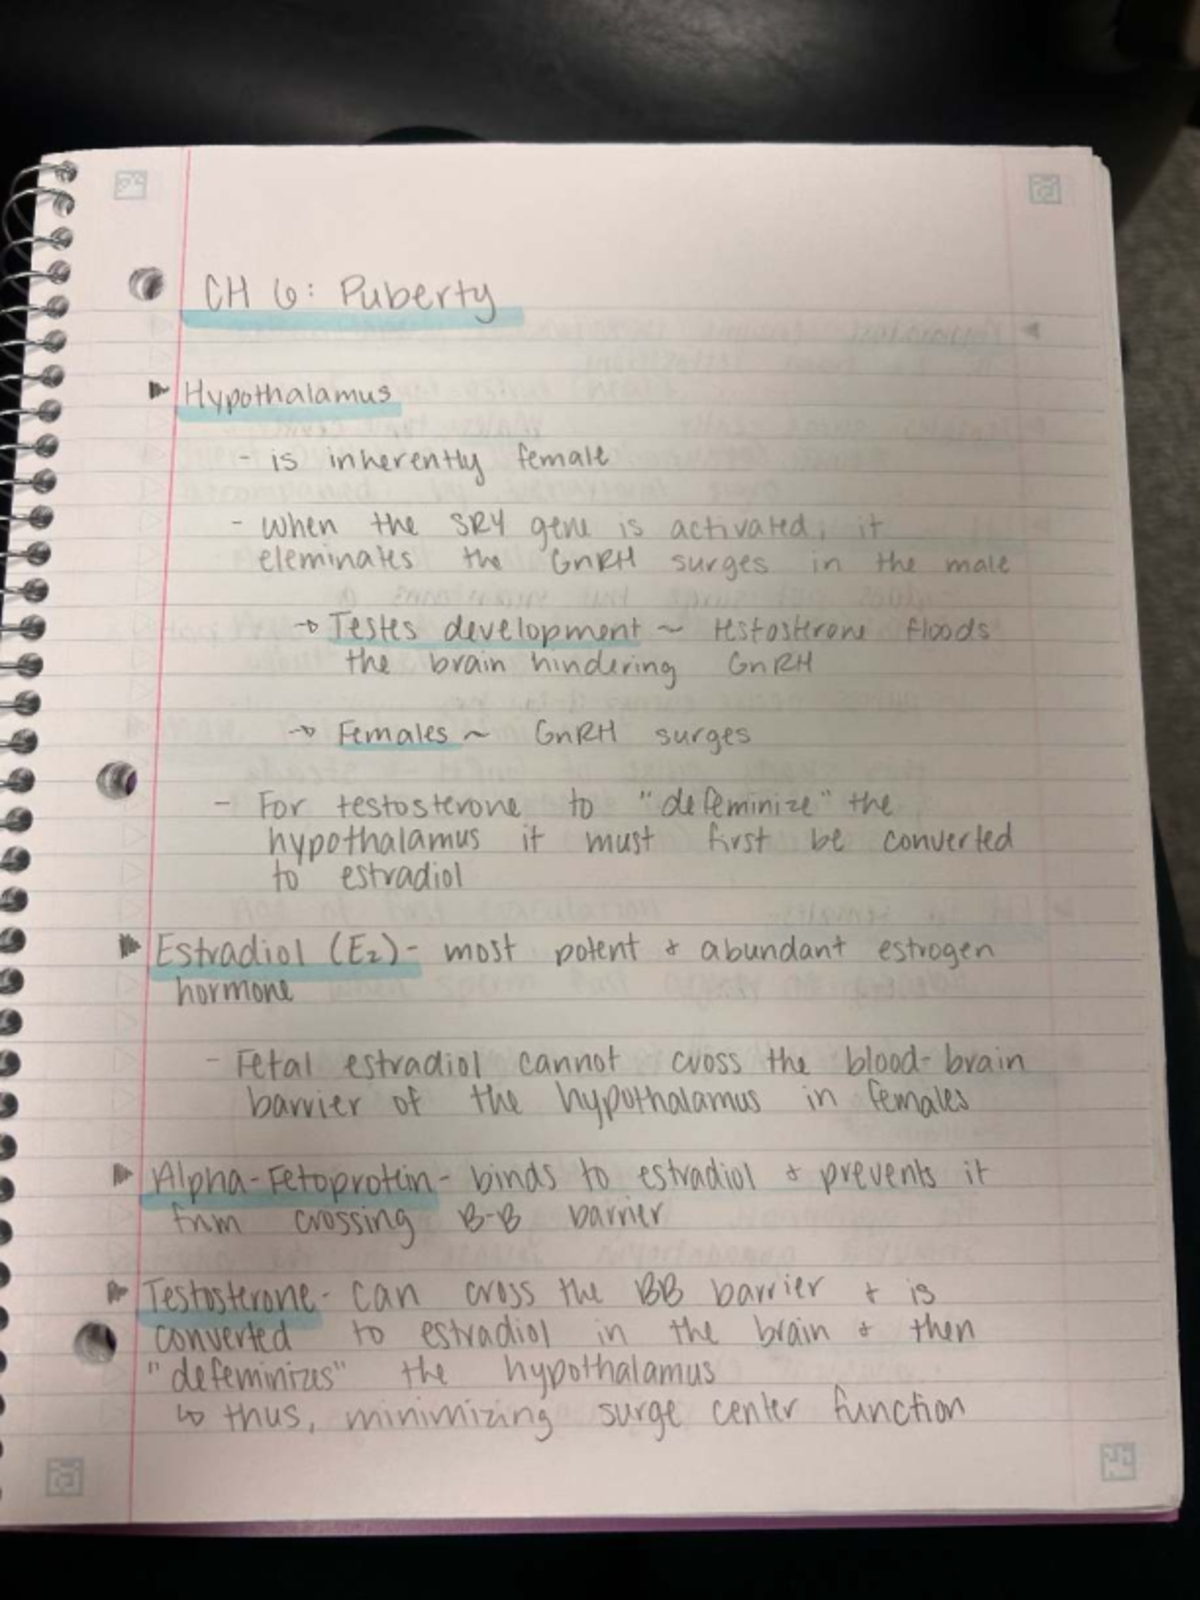 CH 6: Puberty
Hypothalamus
- is inherently female
- When the SRY gene is activated, it
eleminates the GnRH surges in the male
→ Testes development ~ testosterone floods
the brain hindering GnRH
→ Females ~ GnRH surges
- For testosterone to "defeminize" the
hypothalamus it must first be converted
to estradiol
Estradiol (E₂) - most potent & abundant estrogen
hormone
- Fetal estradiol cannot cross the blood-brain
barrier of the hypothalamus in females
Alpha-Fetoprotein - binds to estradiol & prevents it
from crossing B-B barrier
Testosterone - can cross the BB barrier & is
converted to estradiol in the brain & then
"defeminizes" the hypothalamus
↳ thus, minimizing surge center function